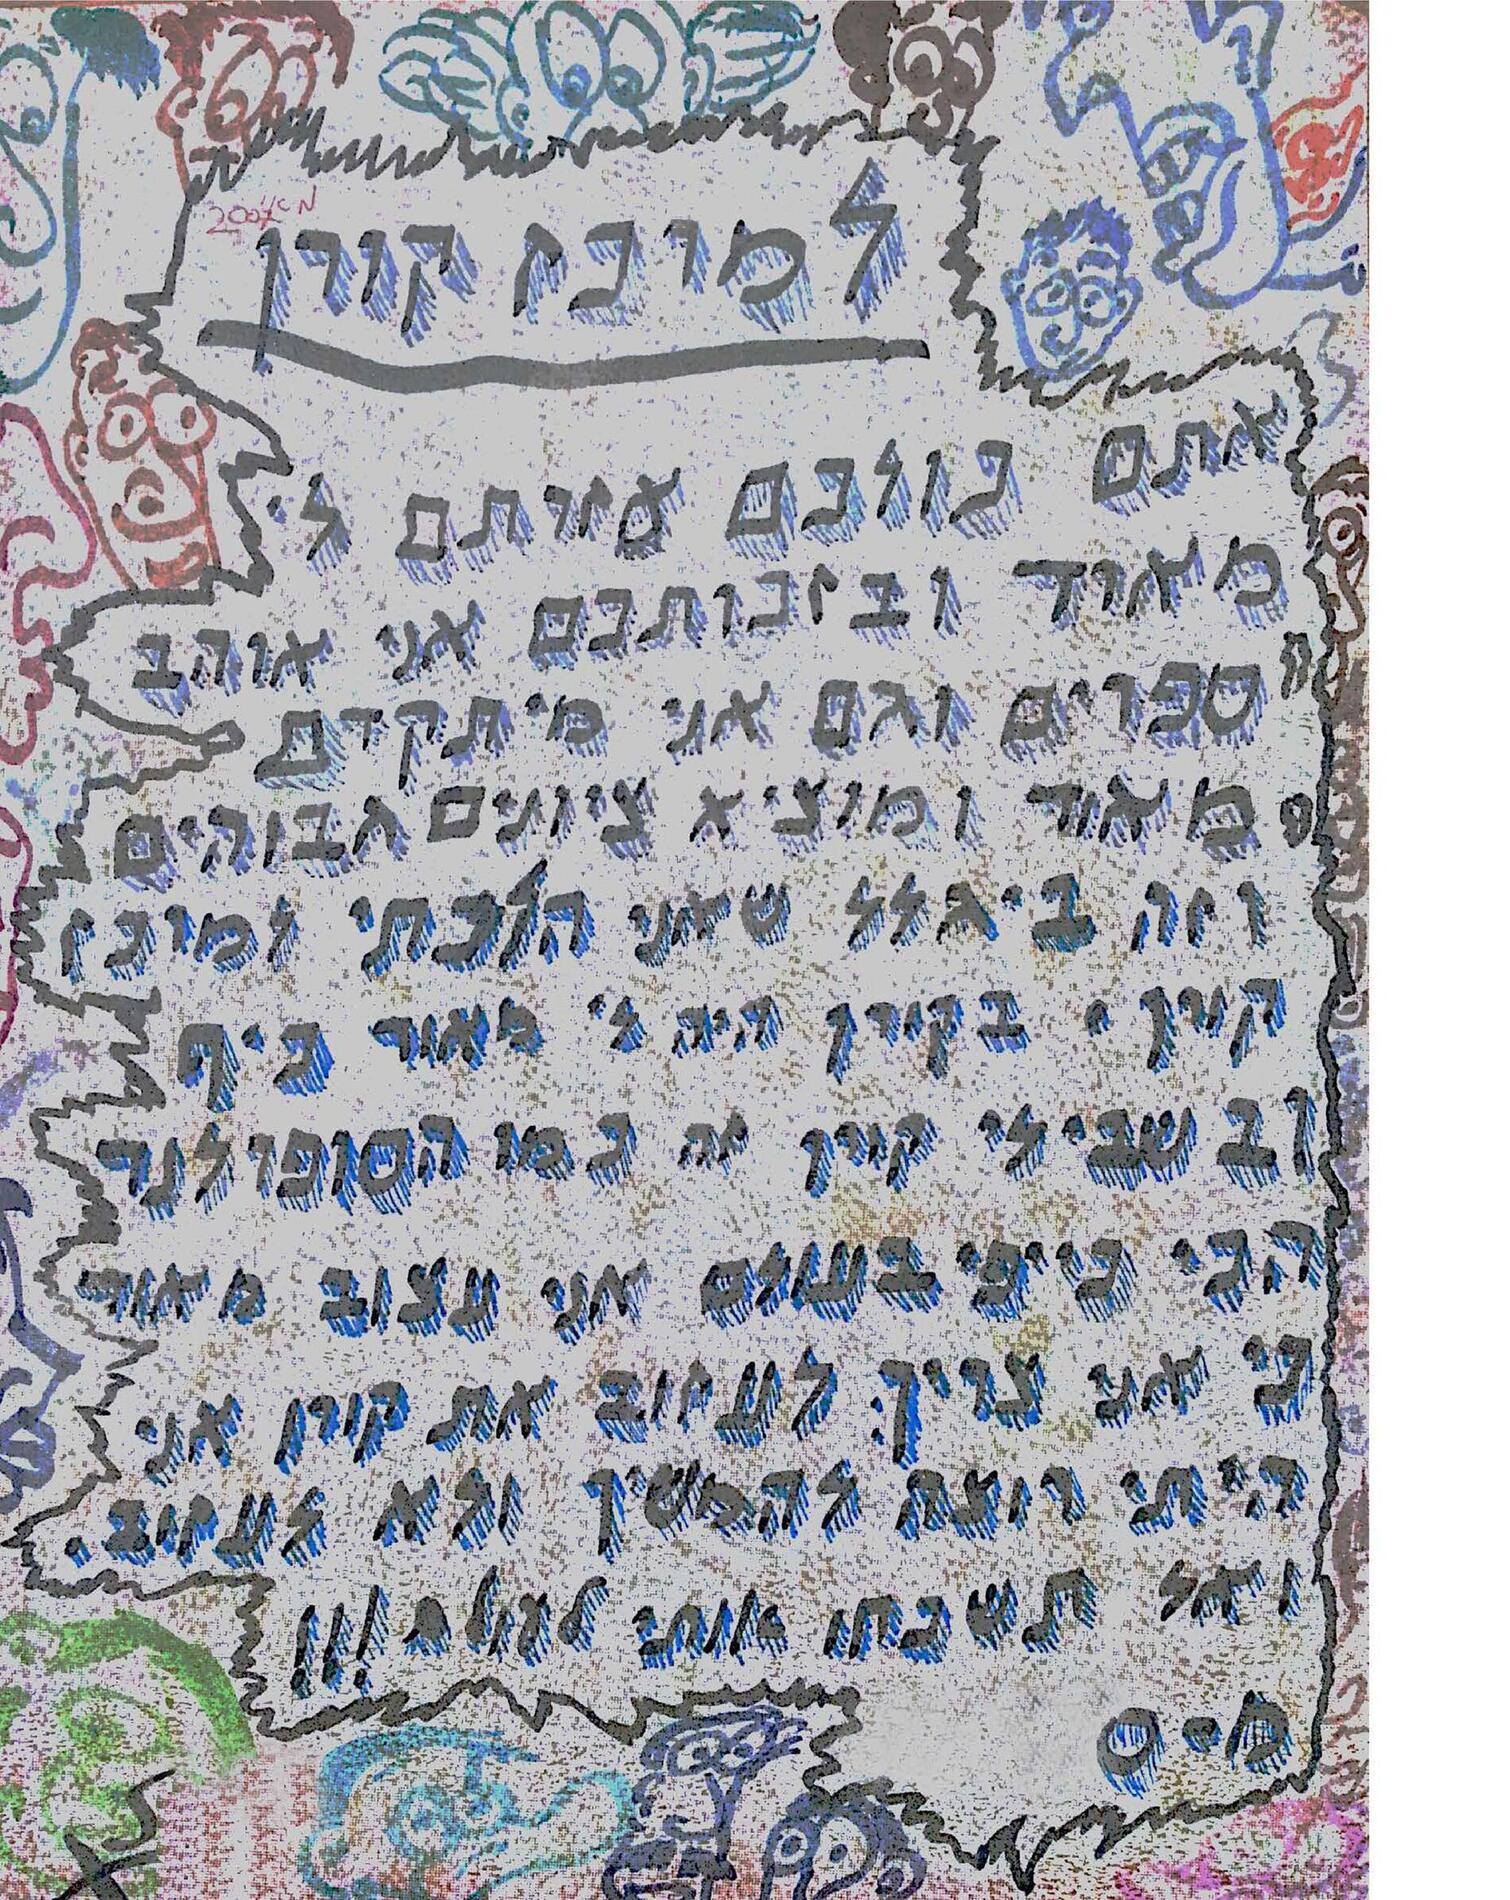 למוכז קורן
אתם כולכם עזרתם לי
מאוד ובזכותכם אני אוהב
ספרים וגם אני מיתקדם
מאוד ומוציא ציונים גבוהים
וזה ביגלל שאני הלכתי למוכז
קורן. בקורן היה לי מאוד כיף
ובשבילי קורן זה כמו הסופרלנד
הכי כייפי בעולם אני עצוב מאוד
כי אני צריך לעזוב את קורן אני
הייתי רוצה להמשיך ולא לעזוב.
ואל תשכחו אותי לעולם!!!
מ.ס